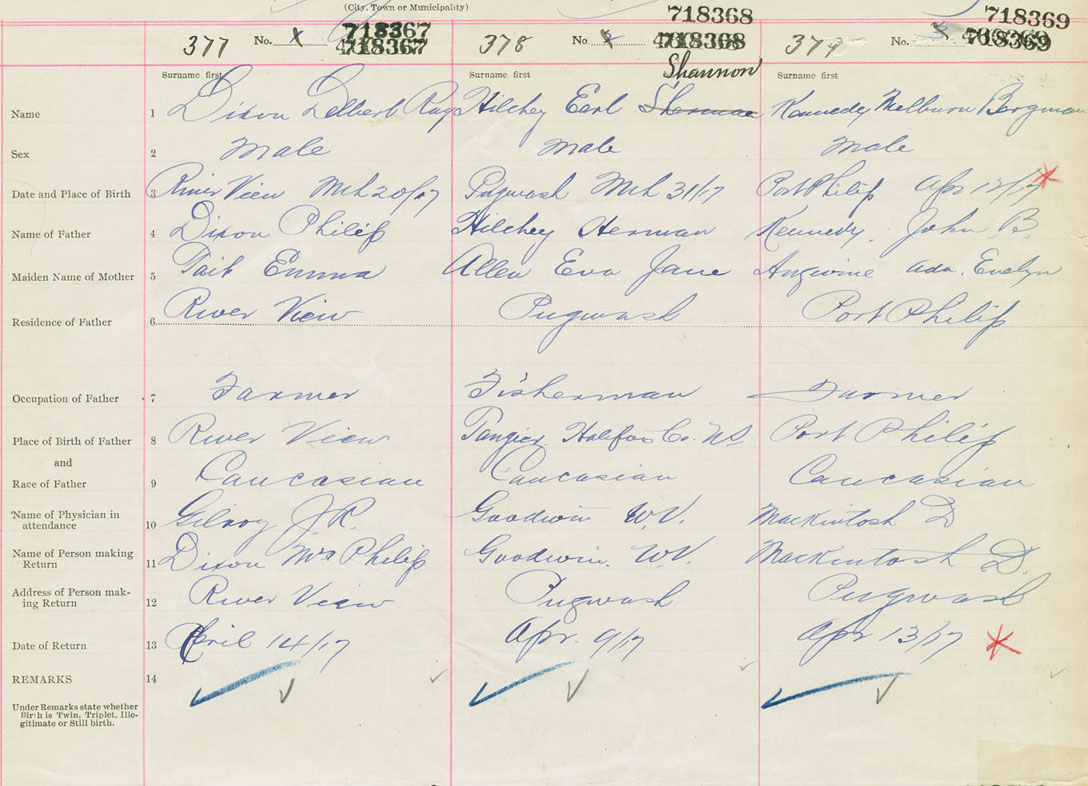 (City, Town or Municipality)
718367 718368 718369
377 No. 718367 378 No. 718368 379 No. 718369
Surname first Surname first Shannon Surname first
Name 1 Dixon Delbert Ray Hilchey Earl Sherman Kennedy Melburn Bergman
Sex 2 Male Male Male
Date and Place of Birth 3 River View Mch 20/17 Pugwash Mch 31/17 Port Philip Apr 12/17
Name of Father 4 Dixon Philip Hilchey Herman Kennedy, John B.
Maiden Name of Mother 5 Tait Emma Allen Eva Jane Angwine Ada. Evelyn
Residence of Father 6 River View Pugwash Port Philip
Occupation of Father 7 Farmer Fisherman Farmer
Place of Birth of Father 8 River View Tangier, Halifax Co. NS Port Philip
and
Race of Father 9 Caucasian Caucasian Caucasian
Name of Physician in
attendance 10 Gilroy J.R. Goodwin W.V. Mackintosh D
Name of Person making
Return 11 Dixon Mrs Philip Goodwin. W.V. Mackintosh D.
Address of Person mak-
ing Return 12 River View Pugwash Pugwash
Date of Return 13 April 14/17 Apr. 9/17 Apr 13/17
REMARKS 14
Under Remarks state whether
Birth is Twin, Triplet, Ille-
gitimate or Still birth.